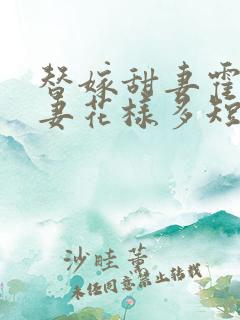 替嫁甜妻霍
妻花样多短
沙眭薰
未经同意禁止转载